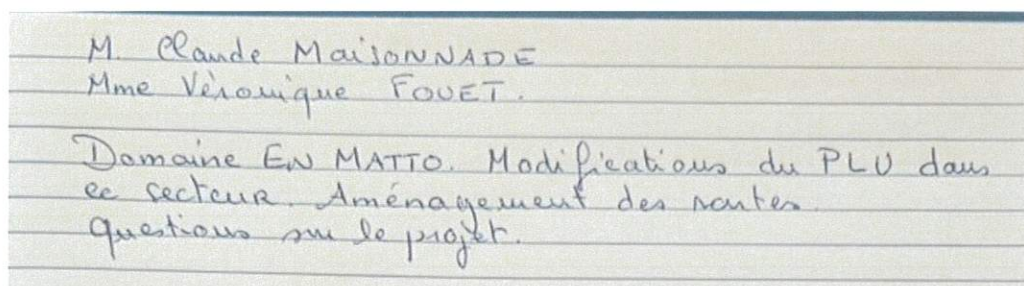 M. Claude MAISONNADE
Mme Véronique FOUET.
Domaine EN MATTO. Modifications du PLU dans
ce secteur. Aménagement des routes.
Questions sur le projet.